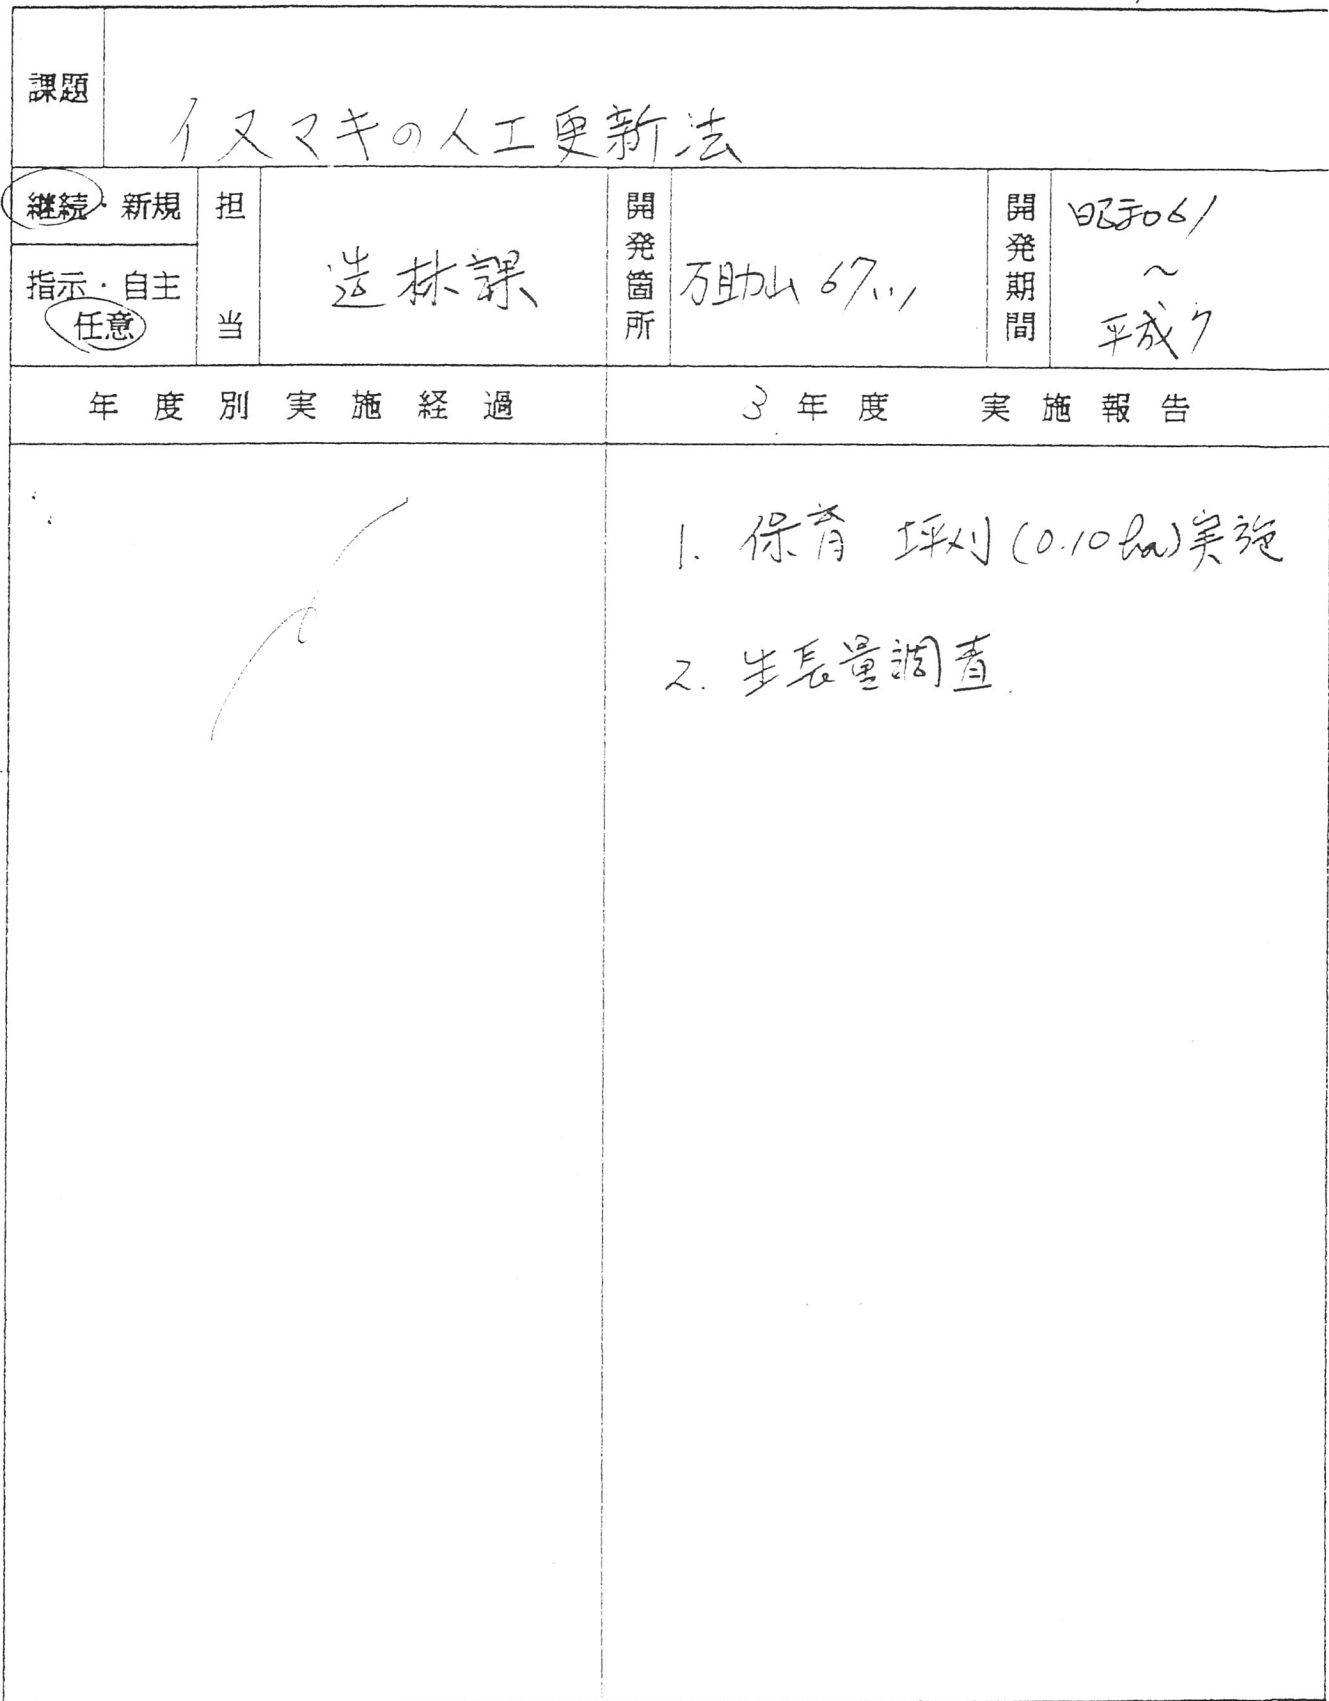 課題
イヌマキの人工更新法
継続・新規
指示・自主
任意
担当
造林課
開発箇所
万助山 67い1
開発期間
昭和61
~
平成7
年度別実施経過
3年度 実施報告
1. 保育 坪刈(0.10ha)実施
2. 生長量調査